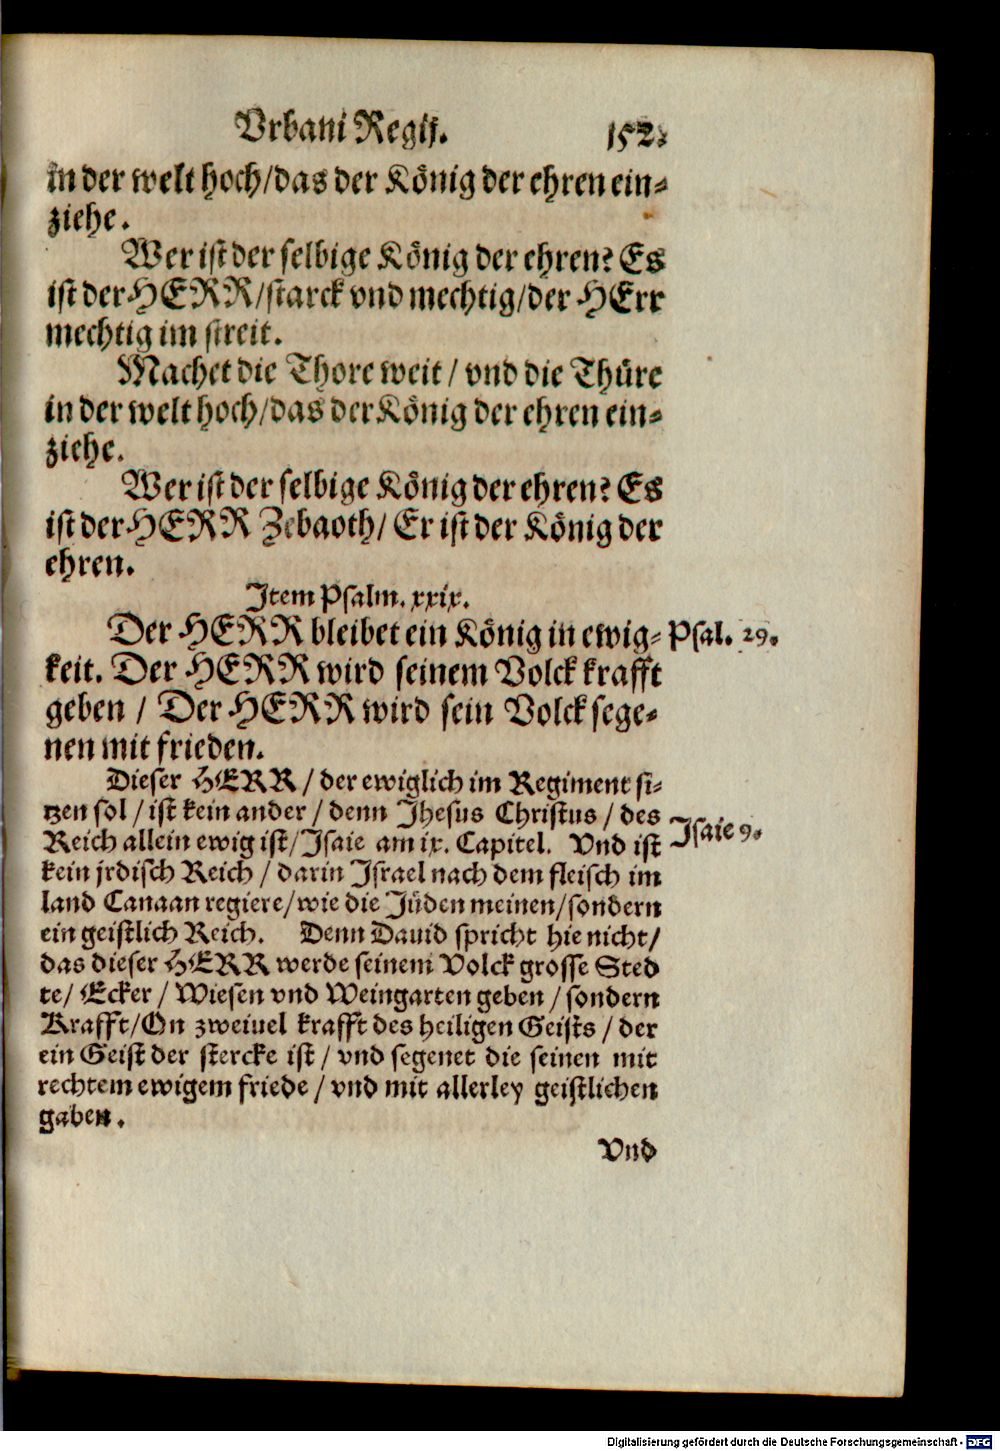 Vrbani Regij. 152.
in der welt hoch/das der König der ehren ein⸗
ziehe.
Wer ist der selbige König der ehren? Es
ist der HERR/starck vnd mechtig/der HErr
mechtig im streit.
Machet die Thore weit / vnd die Thüre
in der welt hoch/das der König der ehren ein⸗
ziehe.
Wer ist der selbige König der ehren? Es
ist der HERR Zebaoth/ Er ist der König der
ehren.
Item Psalm. xxix.
Der HERR bleibet ein König in ewig⸗ Psal. 29.
keit. Der HERR wird seinem Volck krafft
geben / Der HERR wird sein Volck sege⸗
nen mit frieden.
Dieser HERR / der ewiglich im Regiment si⸗
tzen sol / ist kein ander / denn Jhesus Christus / des
Reich allein ewig ist/Jsaie am ix. Capitel. Vnd ist Jsaie 9.
kein jrdisch Reich / darin Jsrael nach dem fleisch im
land Canaan regiere/wie die Jüden meinen/sondern
ein geistlich Reich. Denn Dauid spricht hie nicht/
das dieser HERR werde seinem Volck grosse Sted
te/ Ecker / Wiesen vnd Weingarten geben / sondern
Krafft/On zweiuel krafft des heiligen Geists / der
ein Geist der stercke ist / vnd segenet die seinen mit
rechtem ewigem friede / vnd mit allerley geistlichen
gaben.
Vnd
Digitalisierung gefördert durch die Deutsche Forschungsgemeinschaft - DFG